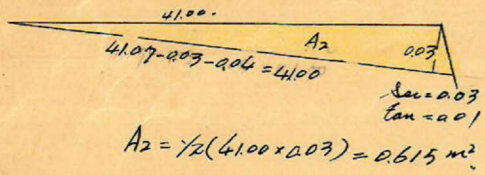 41.00.
A2
0.03
41.07-0.03-0.04=41.00
Sec=0.03
tan=0.01
A2=1/2(41.00x0.03)=0.615 m²